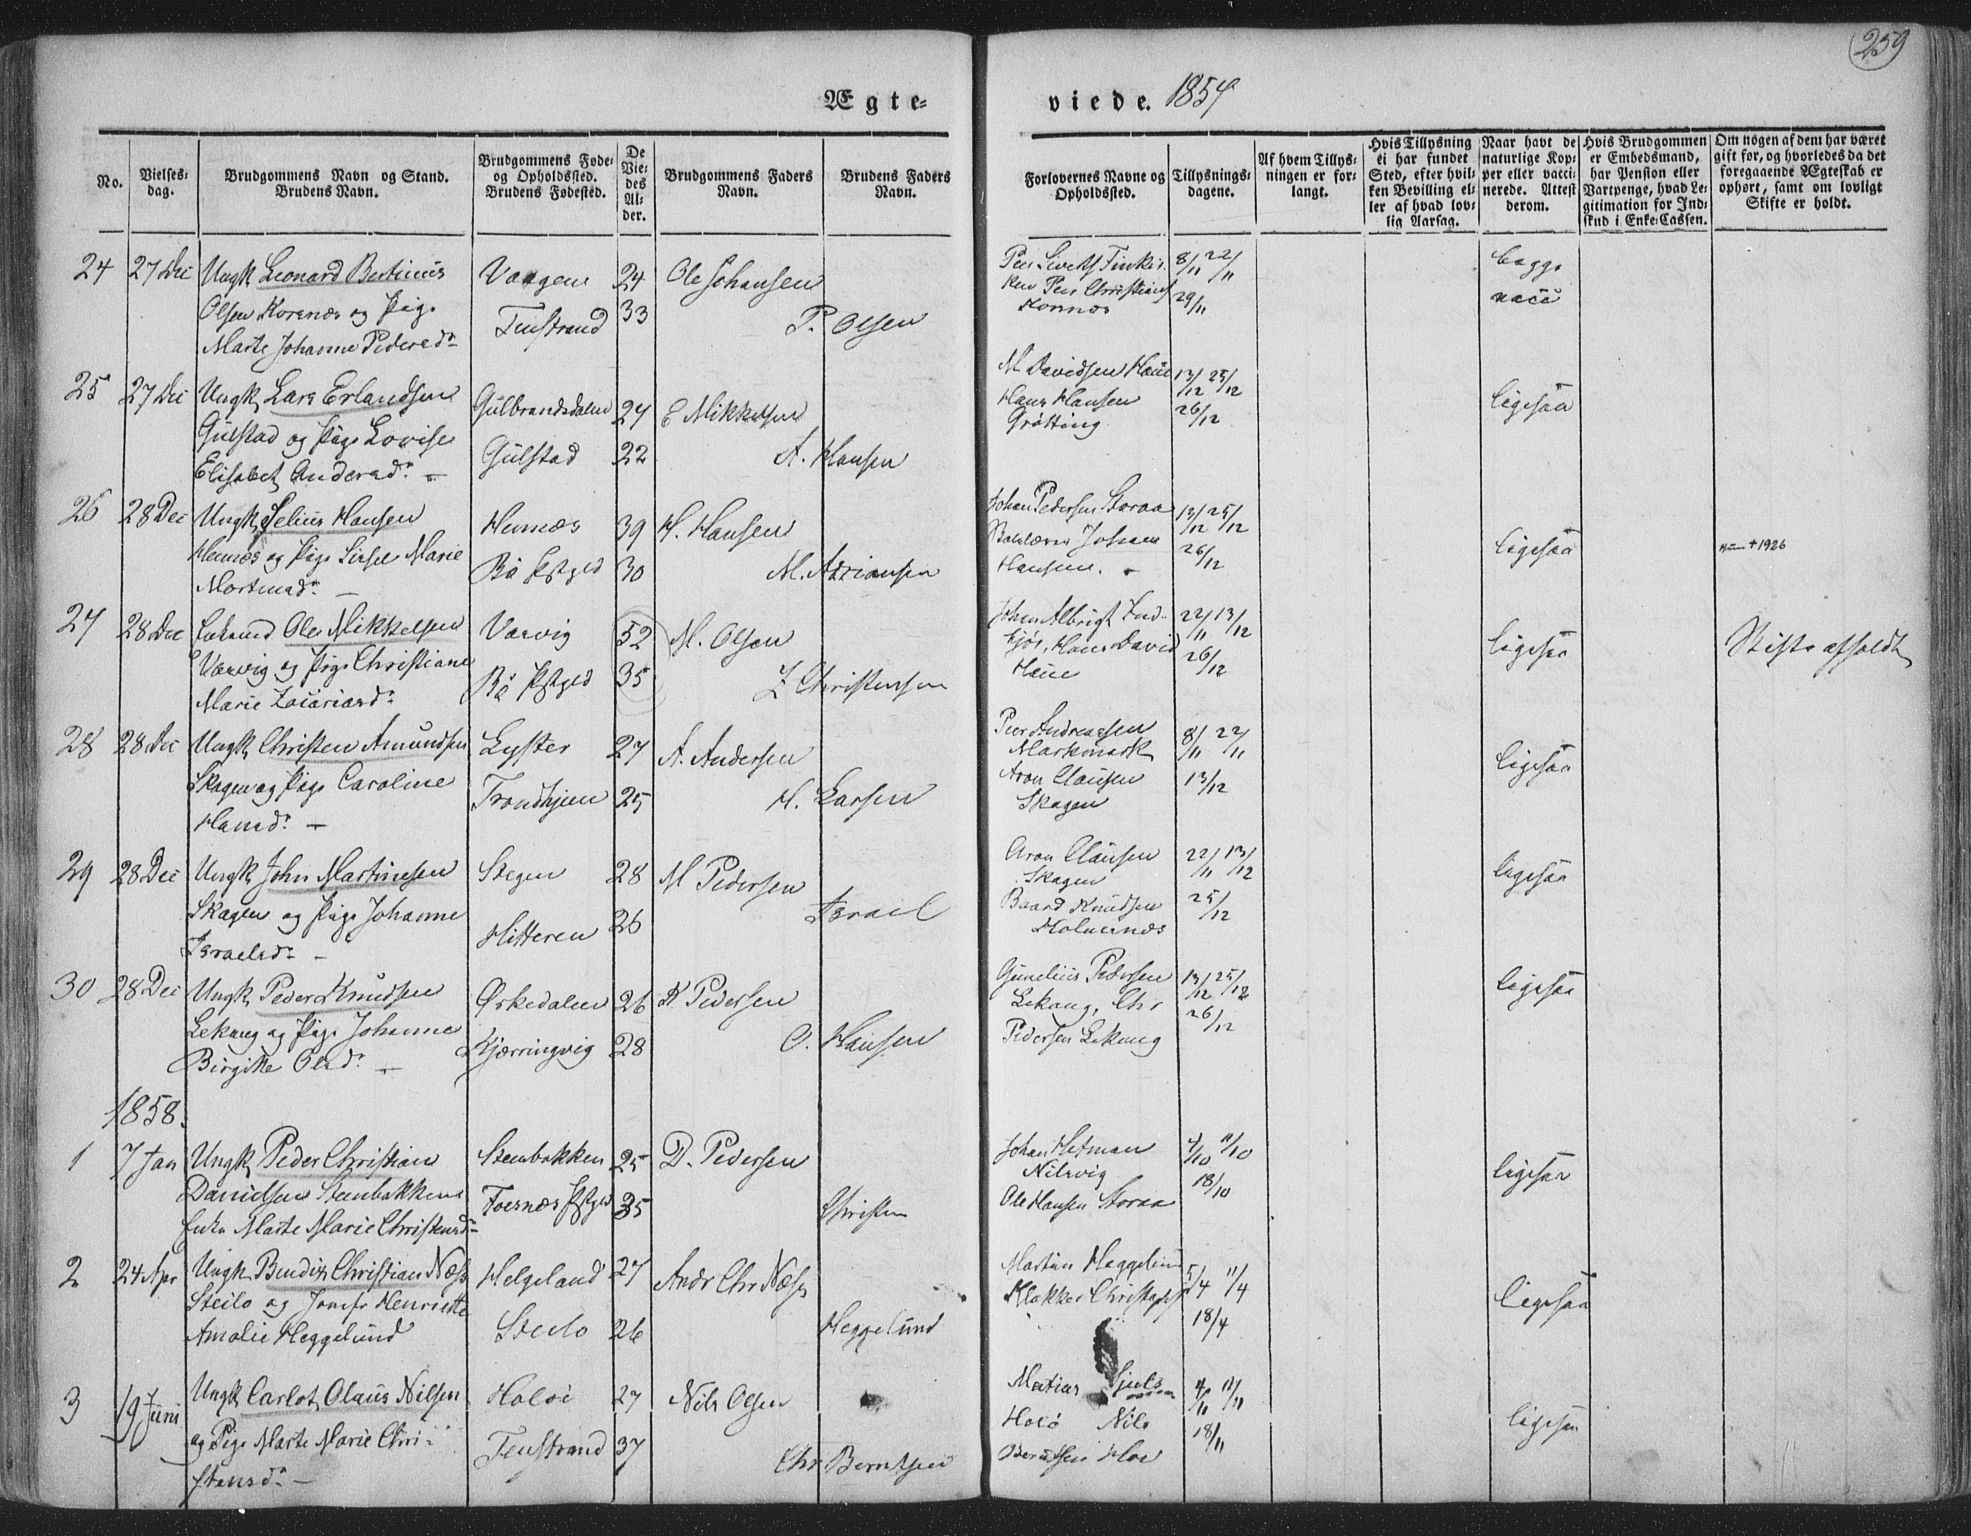 259
Ægte-
viede. 1857
No.
Vielses-
dag.
Brudgommens Navn og Stand.
Brudens Navn.
Brudgommens Føde-
og Opholdssted.
Brudens Fødested.
De
Vie-
des
Al-
der.
Brudgommens Faders
Navn.
Brudens Faders
Navn.
Forlovernes Navne og
Opholdssted.
Tillysnings-
dagene.
Af hvem Tillys-
ningen er for-
langt.
Hvis Tillysning
ei har fundet
Sted, efter hvil-
ken Bevilling el-
ler af hvad lov-
lig Aarsag.
Naar havt de
naturlige Kop-
per eller vacci-
nerede. Attest
derom.
Hvis Brudgommen
er Embedsmand,
har Pension eller
Vartpenge, hvad Le-
gitimation for Ind-
skud i Enke-Cassen.
Om nogen af dem har været
gift før, og hvorledes da det
foregaaende Ægteskab er
ophørt, samt om lovligt
Skifte er holdt.
24 27 Dec Ungk Leonard Bertinus Vaagen 24 Ole Johansen 8/11 22/11 begge
Olsen Korsnæs og Pige Tenstrand 33 P. Olsen Peer Christians 29/11 vacc
Marte Johanne Pedersd. Kornnæs
25 27 Dec Ungk Lars Erlandsen Gulbrandsdalen 27 E Mikkelsen M Davidsen Haue 13/12 25/12 ligesaa
Gulstad og Pige Lovise Gulstad 22 A. Hansen Hans Hansen 26/12
Elisabet Andersd. - Grøtting
26 28 Dec Ungk Selius Hansen Hemnæs 39 H. Hansen Johan Pedersen Storaa 13/12 25/12 ligesaa + 1926
Hemnæs og Pige Sirsel Marie Bø Pstgld 30 M. Adriansen Johan 26/12
Mortensd. - Hansen. -
27 28 Dec Enkemd Ole Mikkelsen Varvig 52 M. Olsen Johan Albrigt 22/11 13/12 ligesaa Skifte afholdt
Varvig og Pige Christiane Bø Pstgld 35 Z Christensen Hans David 26/12
Marie Zacariasd. Haue
28 28 Dec Ungk Christen Amundsen Lyster 27 A. Andersen Peer Andreassen 8/11 22/11 ligesaa
Skagen og Pige Caroline Trondhjem 25 H. Larsen Markmark
Hansd. - Aron Clausen 13/12
Skagen
29 28 Dec Ungk John Martinesen Stegen 28 M Pedersen Aron Clausen 22/11 13/12 ligesaa
Skagen og Pige Johanne Hitteren 26 Israel Skagen
Israelsd. - Baard Knudsen 25/12
Holmernæs
30 28 Dec Ungk Peder Knudsen Ørkedalen 26 K Pedersen Gunelius Pedersen 13/12 25/12 ligesaa
Lekang og Pige Johanne Kjærringvig 28 O. Hansen Lekang, Chr 26/12
Birgitte Olsd. - Pedersen Lekang
1858.
1 7 Jan Ungk Peder Christian Steenbakken 25 D. Pedersen Johan Hetman 4/10 11/10 ligesaa
Danielsen Steenbakken Foesnæs Pstgld 35 Christen Nilsvig 18/10
Enke Marte Marie Christensd. Ole Hansen Storaa
2 24 Apr Ungk Bendix Christian Næss Helgeland 27 Andr Chr Næss Martin Heggelund 5/4 11/4 ligesaa
Steilo og Jomfr Henriette Steilo 26 Heggelund Klokker 18/4
Amalie Heggelund
3 19 Juni Ungk Carlot Olaus Nilsen Holoi 27 Nils Olsen Matias 4/11 11/11 ligesaa
og Pige Marte Marie Chri- Tenstrand 37 Chr Berntsen Holø Nils 18/11
stensd. - Berntsen